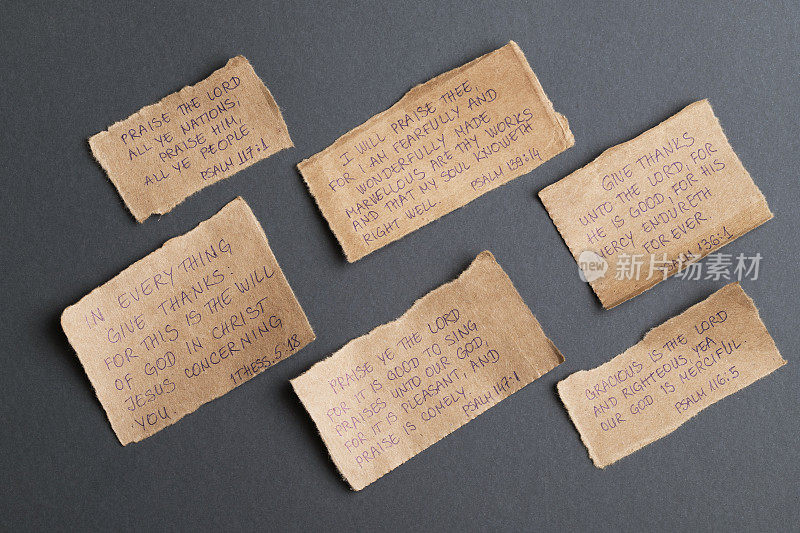 PRAISE THE LORD
ALL YE NATIONS,
PRAISE HIM,
ALL YE PEOPLE.
PSALM 117:1
I WILL PRAISE THEE
FOR I AM FEARFULLY AND
WONDERFULLY MADE
MARVELLOUS ARE THY WORKS
AND THAT MY SOUL KNOWETH
RIGHT WELL.
PSALM 139:14
GIVE THANKS
UNTO THE LORD, FOR
HE IS GOOD, FOR HIS
MERCY ENDURETH
FOR EVER.
PSALM 136:1
IN EVERYTHING
GIVE THANKS.
FOR THIS IS THE WILL
OF GOD IN CHRIST
JESUS CONCERNING
YOU.
1THESS.5:18
PRAISE YE THE LORD
FOR IT IS GOOD TO SING
PRAISES UNTO OUR GOD,
FOR IT IS PLEASANT, AND
PRAISE IS COMELY.
PSALM 147:1
GRACIOUS IS THE LORD
AND RIGHTEOUS YEA
OUR GOD IS MERCIFUL.
PSALM 116:5
new 新片场素材